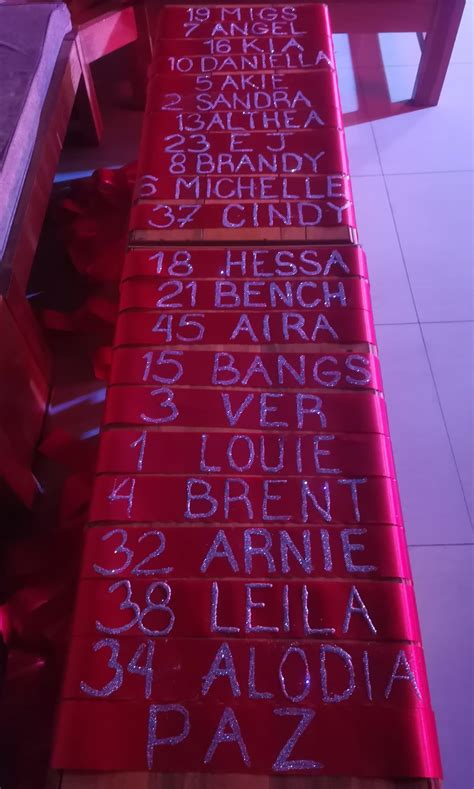 19 MIGS
7 ANGEL
16 KIA
10 DANIELLA
5 AKIE
2 SANDRA
13 ALTHEA
23 E J
8 BRANDY
6 MICHELLE
37 CINDY
18 HESSA
21 BENCH
45 AIRA
15 BANGS
3 VER
1 LOUIE
4 BRENT
32 ARNIE
38 LEILA
34 ALODIA
PAZ